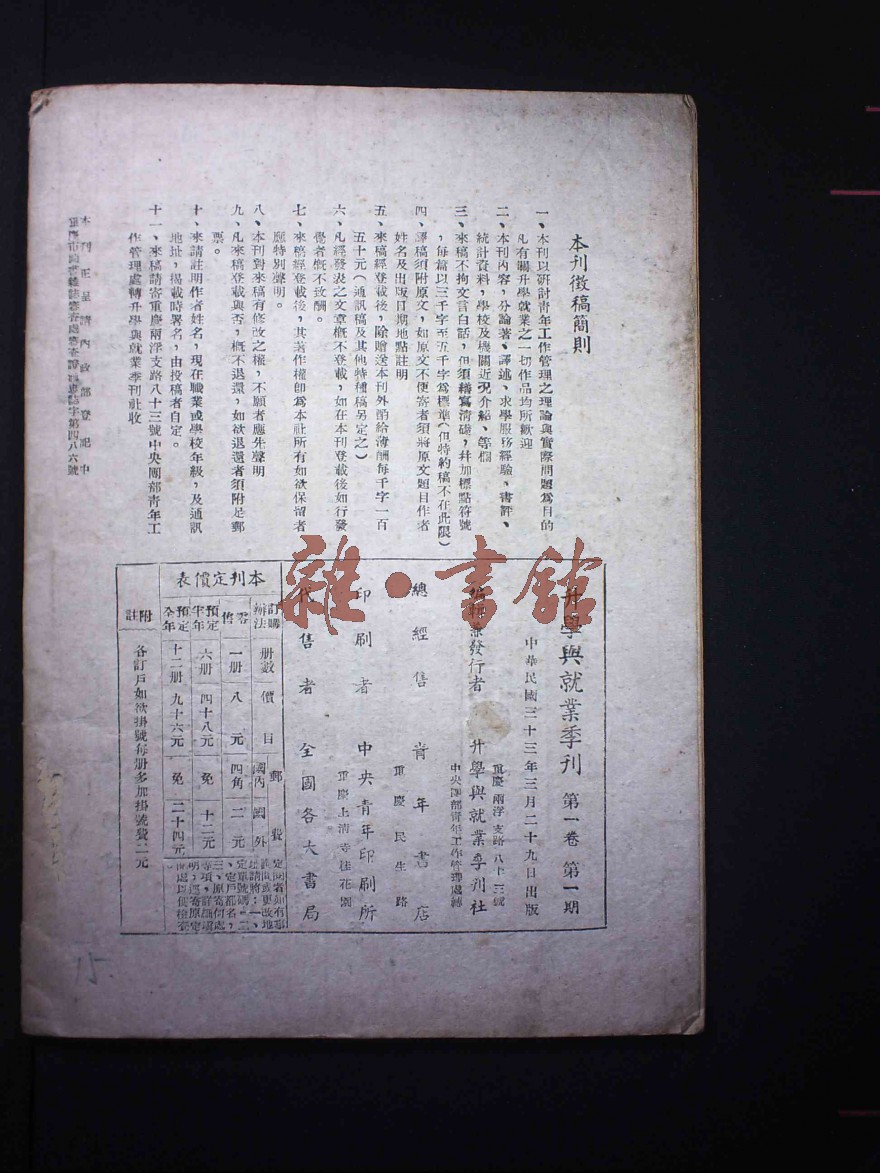 本刊徵稿簡則
一、本刊以研討青年工作管理之理論與實際問題為目的
凡有關升學就業之一切作品均所歡迎
二、本刊內容，分論著、譯述、求學服務經驗、書評、
統計資料，學校及機關近況介紹、等欄
三、來稿不拘文言白話，但須繕寫清礎，幷加標點符號
，每篇以三千字至五千字為標準（但特約稿不在此限）
四、譯稿須附原文，如原文不便寄者須將原文題目作者
姓名及出版日期地點註明
五、來稿經登載後，除贈送本刊外酌給薄酬每千字一百
五十元（通訊稿及其他特種稿另定之）
六、凡經發表之文章概不登載，如在本刊登載後如行發
覺者概不致酬。
七、來稿經登載後，其著作權卽為本社所有如欲保留者
應特別聲明。
八、本刊對來稿有修改之權，不願者應先聲明
九、凡來稿登載與否，概不退還，如欲退還者須附足郵
票。
十、來請註明作者姓名，現在職業或學校年級，及通訊
地址，揭載時署名，由投稿者自定。
十一、來稿請寄重慶兩浮支路八十三號中央團部青年工
作管理處轉升學與就業季刊社收
本刊正呈請內政部登記中
升學與就業季刊 第一卷 第一期
中華民國三十三年三月二十九日出版
編輯兼發行者 升學與就業季刊社
重慶兩浮支路八十三號
中央團部青年工作管理處轉
總經售 青年書店
重慶民生路
印刷者 中央青年印刷所
重慶上清寺桂花園
代售者 全國各大書局
本刊定價表
訂購辦法 冊數 價目 郵費 國內 國外
零售 一冊 八元 四角 二元
預定半年 六冊 四十八元 免 十二元
預定全年 十二冊 九十六元 免 二十四元
附註 各訂戶如欲掛號每冊多加掛號費二元
雜·書館
15